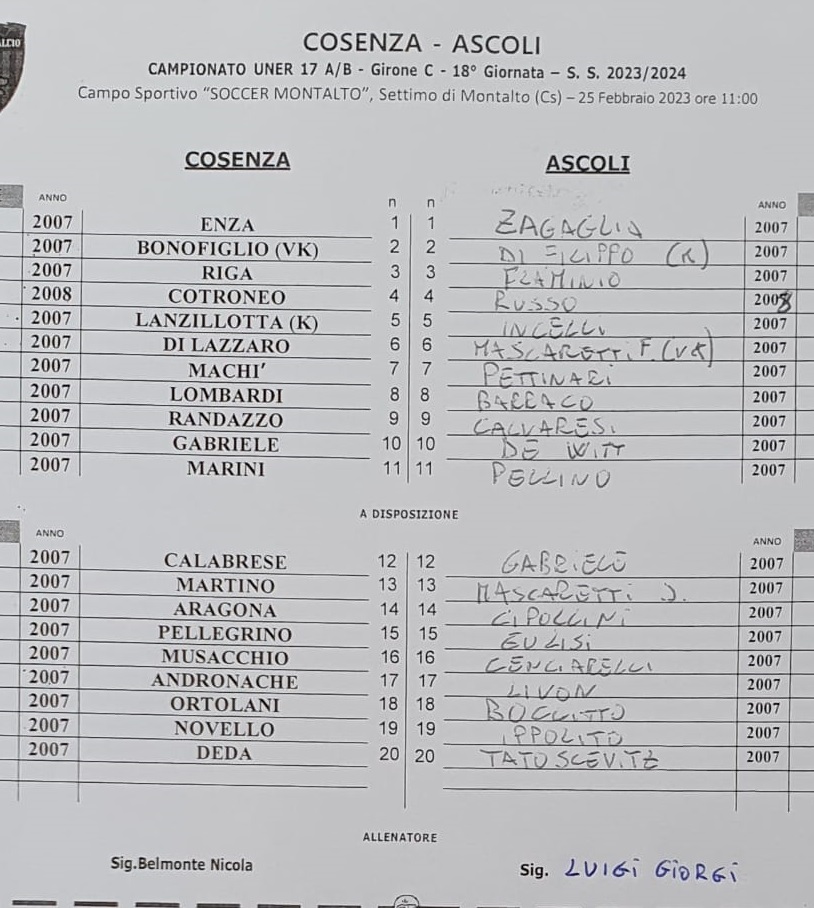 ALCIO
COSENZA - ASCOLI
CAMPIONATO UNER 17 A/B - Girone C - 18° Giornata – S. S. 2023/2024
Campo Sportivo “SOCCER MONTALTO”, Settimo di Montalto (Cs) – 25 Febbraio 2023 ore 11:00
COSENZA ASCOLI
ANNO n n ANNO
2007 ENZA 1 1 ZAGAGLIA 2007
2007 BONOFIGLIO (VK) 2 2 DI FILIPPO (K) 2007
2007 RIGA 3 3 FLAMINIO 2007
2008 COTRONEO 4 4 RUSSO 2008
2007 LANZILLOTTA (K) 5 5 INCELLI 2007
2007 DI LAZZARO 6 6 MASCARETTI F. (VK) 2007
2007 MACHI’ 7 7 PETTINARI 2007
2007 LOMBARDI 8 8 BARRACO 2007
2007 RANDAZZO 9 9 CALVARESI 2007
2007 GABRIELE 10 10 DE WITT 2007
2007 MARINI 11 11 PELLINO 2007
A DISPOSIZIONE
ANNO ANNO
2007 CALABRESE 12 12 GABRIELE 2007
2007 MARTINO 13 13 MASCARETTI J. 2007
2007 ARAGONA 14 14 CIPOLLINI 2007
2007 PELLEGRINO 15 15 EULISI 2007
2007 MUSACCHIO 16 16 CENCIARELLI 2007
2007 ANDRONACHE 17 17 LIVON 2007
2007 ORTOLANI 18 18 2007
2007 NOVELLO 19 19 IPPOLITO 2007
2007 DEDA 20 20 TATUSCEVITZ 2007
ALLENATORE
Sig.Belmonte Nicola Sig. LUIGI GIORGI